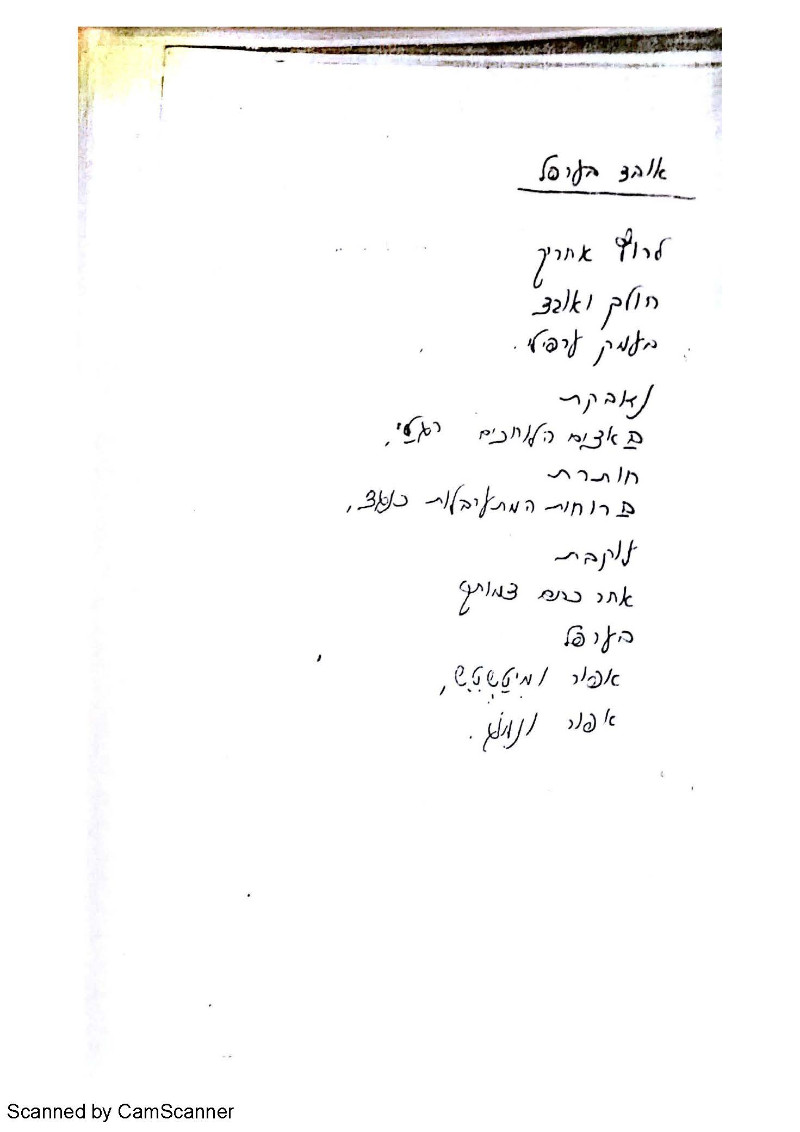 אובד בערפל
לרוץ אחריך
הולך ואובד
בעמק ערפילי.
נאבקת
באדים הלוחכים רגלי,
חותרת
ברוחות המתערבלות כנגד,
עוקבת
אחר כתם דמותך
בערפל
אפור ומיטשטש,
אפור ונמוג.
Scanned by CamScanner